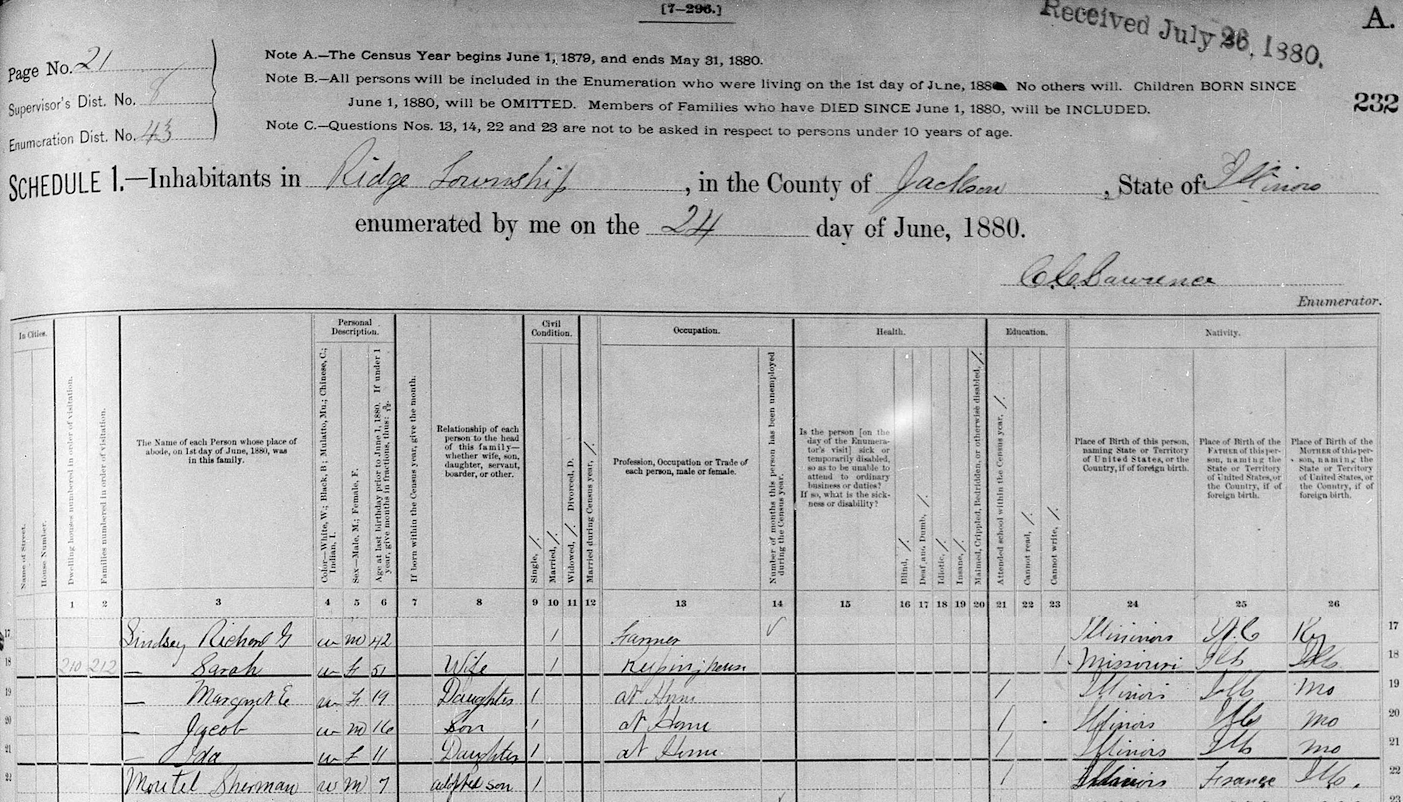 [7-296.]
Received July 26, 1880.
A.
Page No. 21
Supervisor's Dist. No. 8
Enumeration Dist. No. 43
Note A.—The Census Year begins June 1, 1879, and ends May 31, 1880.
Note B.—All persons will be included in the Enumeration who were living on the 1st day of June, 1880. No others will. Children BORN SINCE
June 1, 1880, will be OMITTED. Members of Families who have DIED SINCE June 1, 1880, will be INCLUDED.
Note C.—Questions Nos. 13, 14, 22 and 23 are not to be asked in respect to persons under 10 years of age.
232
SCHEDULE 1.—Inhabitants in Ridge Township, in the County of Jackson, State of Illinois
enumerated by me on the 24 day of June, 1880.
C. C. Lawrence
Enumerator.
In Cities.
Name of Street.
House Number.
Dwelling houses numbered in order of visitation.
Families numbered in order of visitation.
The Name of each Person whose place of
abode, on 1st day of June, 1880, was
in this family.
Personal
Description.
Color—White, W.; Black, B.; Mulatto, Mu.; Chinese, C.;
Indian, I.
Sex—Male, M.; Female, F.
Age at last birthday prior to June 1, 1880. If under 1
year, give months in fractions, thus: 3/12.
If born within the Census year, give the month.
Relationship of each
person to the head
of this family—
whether wife, son,
daughter, servant,
boarder, or other.
Civil
Condition.
Single, /.
Married, /.
Widowed, /. Divorced, D.
Married during Census year, /.
Occupation.
Profession, Occupation or Trade of
each person, male or female.
Number of months this person has been unemployed
during the Census year.
Health.
Is the person [on the
day of the Enumera-
tor's visit] sick or
temporarily disabled,
so as to be unable to
attend to ordinary
business or duties?
If so, what is the sick-
ness or disability?
Blind, /.
Deaf and Dumb, /.
Idiotic, /.
Insane, /.
Maimed, Crippled, Bedridden, or otherwise disabled, /.
Education.
Attended school within the Census year, /.
Cannot read, /.
Cannot write, /.
Nativity.
Place of Birth of this person,
naming State or Territory
of United States, or the
Country, if of foreign birth.
Place of Birth of the
FATHER of this per-
son, naming the
State or Territory
of United States, or
the Country, if of
foreign birth.
Place of Birth of the
MOTHER of this per-
son, naming the
State or Territory
of United States, or
the Country, if of
foreign birth.
1 2 3 4 5 6 7 8 9 10 11 12 13 14 15 16 17 18 19 20 21 22 23 24 25 26
17 Lindsey Richard G w m 42 / Farmer Illininois N.C Ky 17
18 210 212 — Sarah w f 51 Wife / Keeping house / Missouri Ills Ills 18
19 — Margret E w f 19 Daughter / at Home / Illinois Ills Mo 19
20 — Jacob w m 16 Son / at Home / Illinois Ills mo 20
21 — Ida w f 11 Daughter / at Home / Illinois Ills mo 21
22 Moutel Sherman w m 7 adopted son / / Illinois France Ills. 22
23